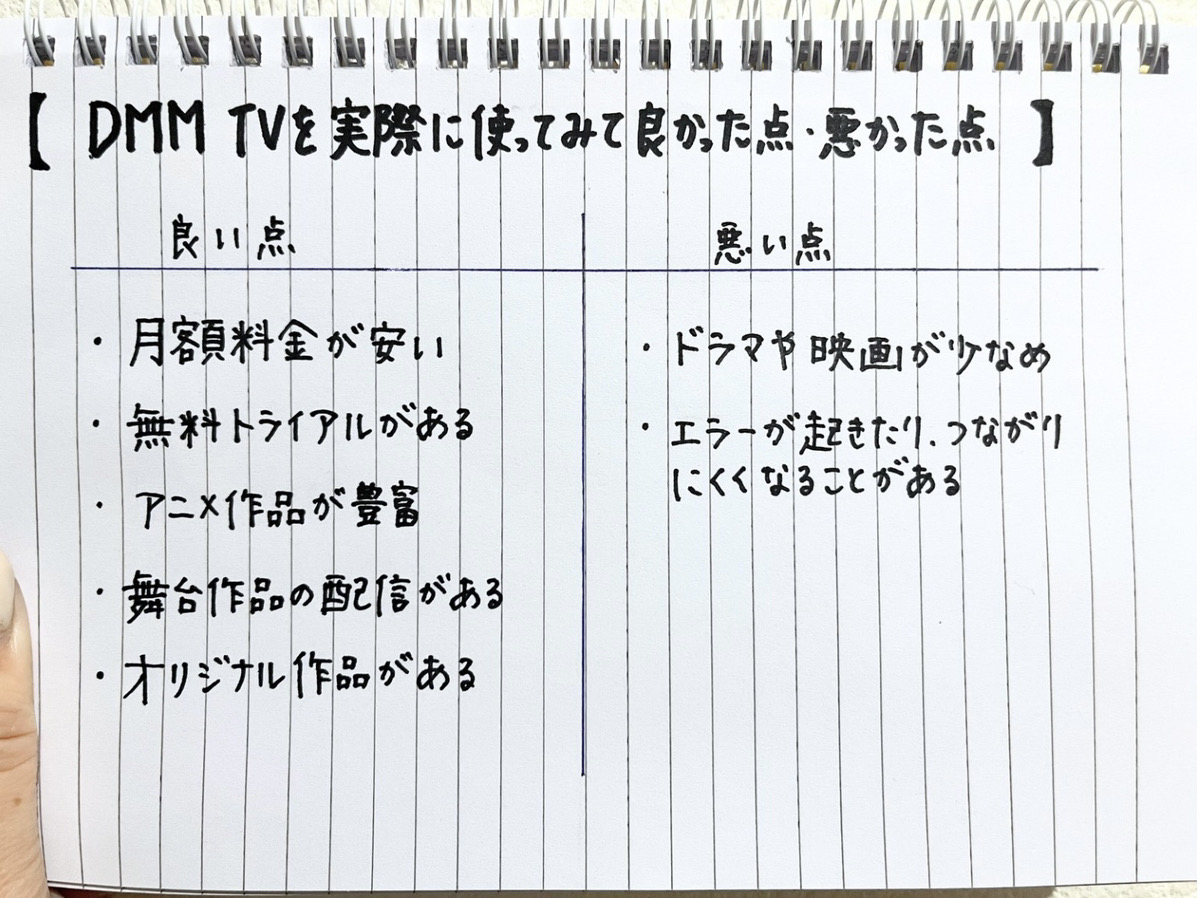 【 DMM TVを実際に使ってみて良かった点・悪かった点 】
良い点
・月額料金が安い
・無料トライアルがある
・アニメ作品が豊富
・舞台作品の配信がある
・オリジナル作品がある
悪い点
・ドラマや映画が少なめ
・エラーが起きたり、つながり
にくくなることがある